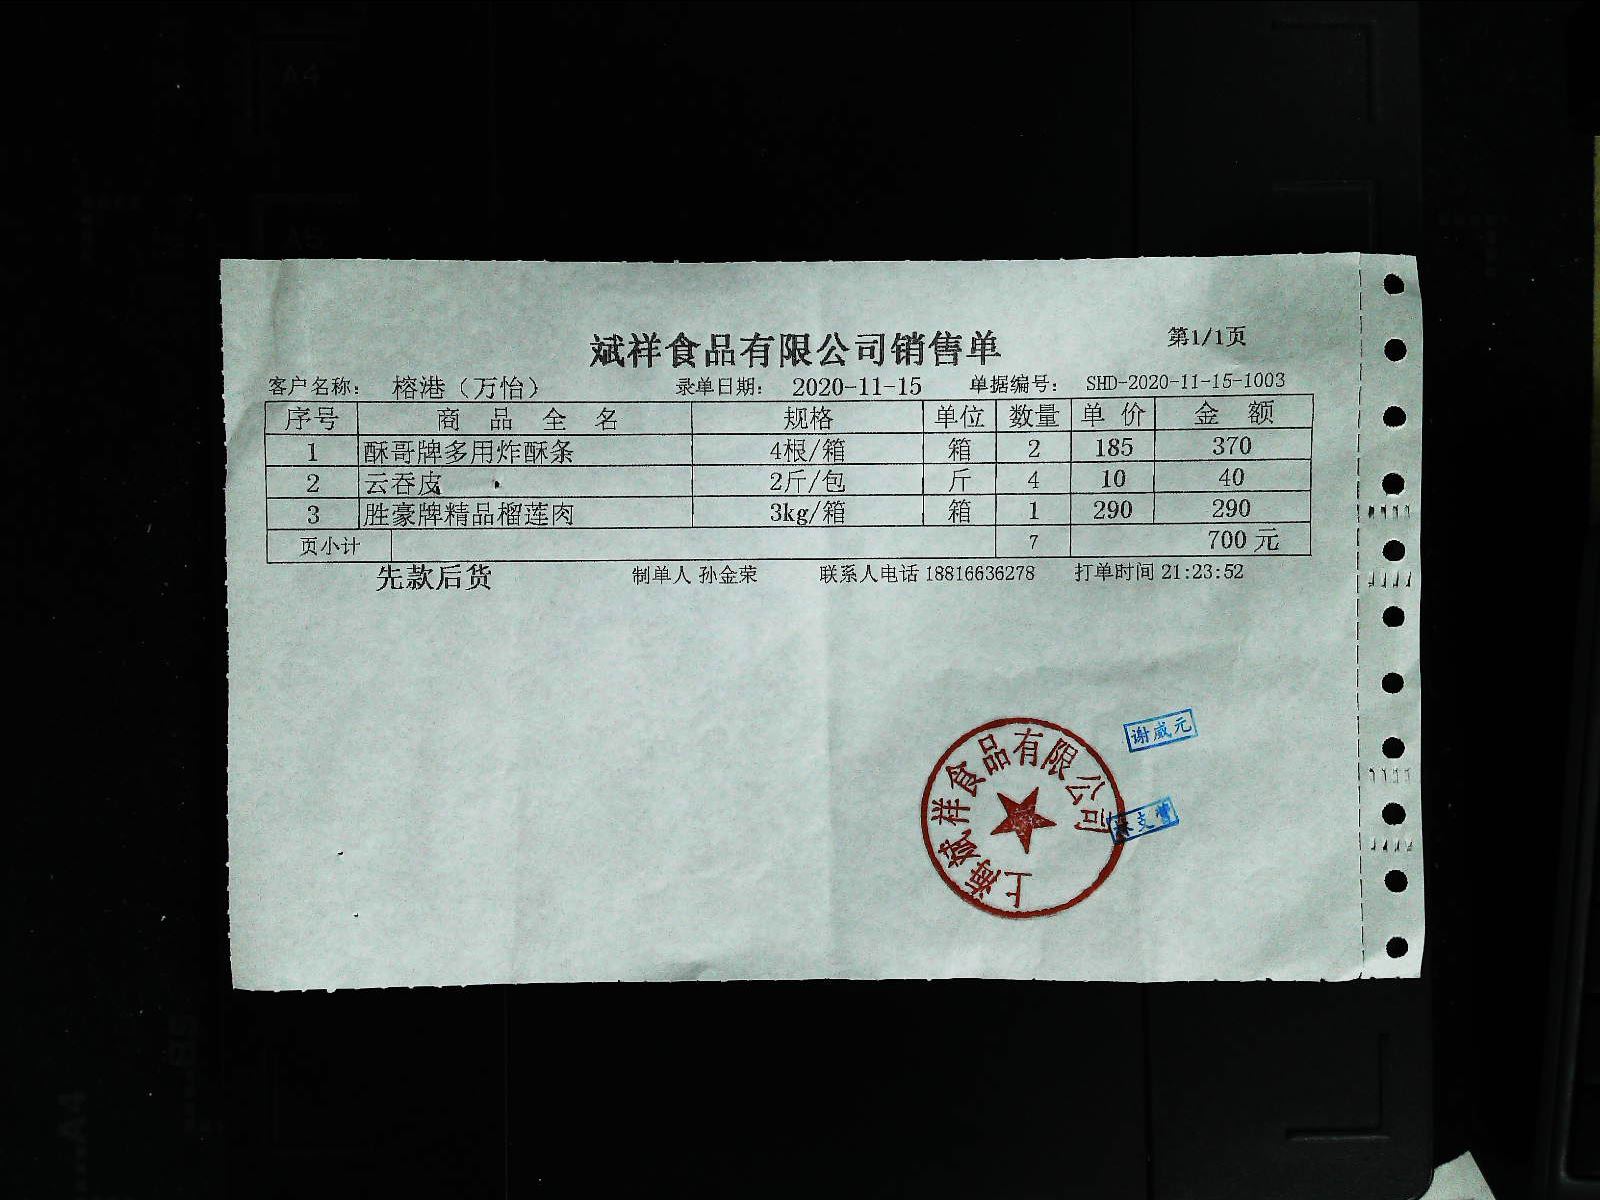 斌祥食品有限公司销售单
第1/1页
客户名称： 榕港（万怡） 录单日期： 2020-11-15 单据编号： SHD-2020-11-15-1003
序号 商品全名 规格 单位 数量 单价 金额
1 酥哥牌多用炸酥条 4根/箱 箱 2 185 370
2 云吞皮 2斤/包 斤 4 10 40
3 胜豪牌精品榴莲肉 3kg/箱 箱 1 290 290
页小计 7 700元
先款后货 制单人 孙金荣 联系人电话 18816636278 打单时间 21:23:52
谢威元
上海斌祥食品有限公司
支
A4
A5